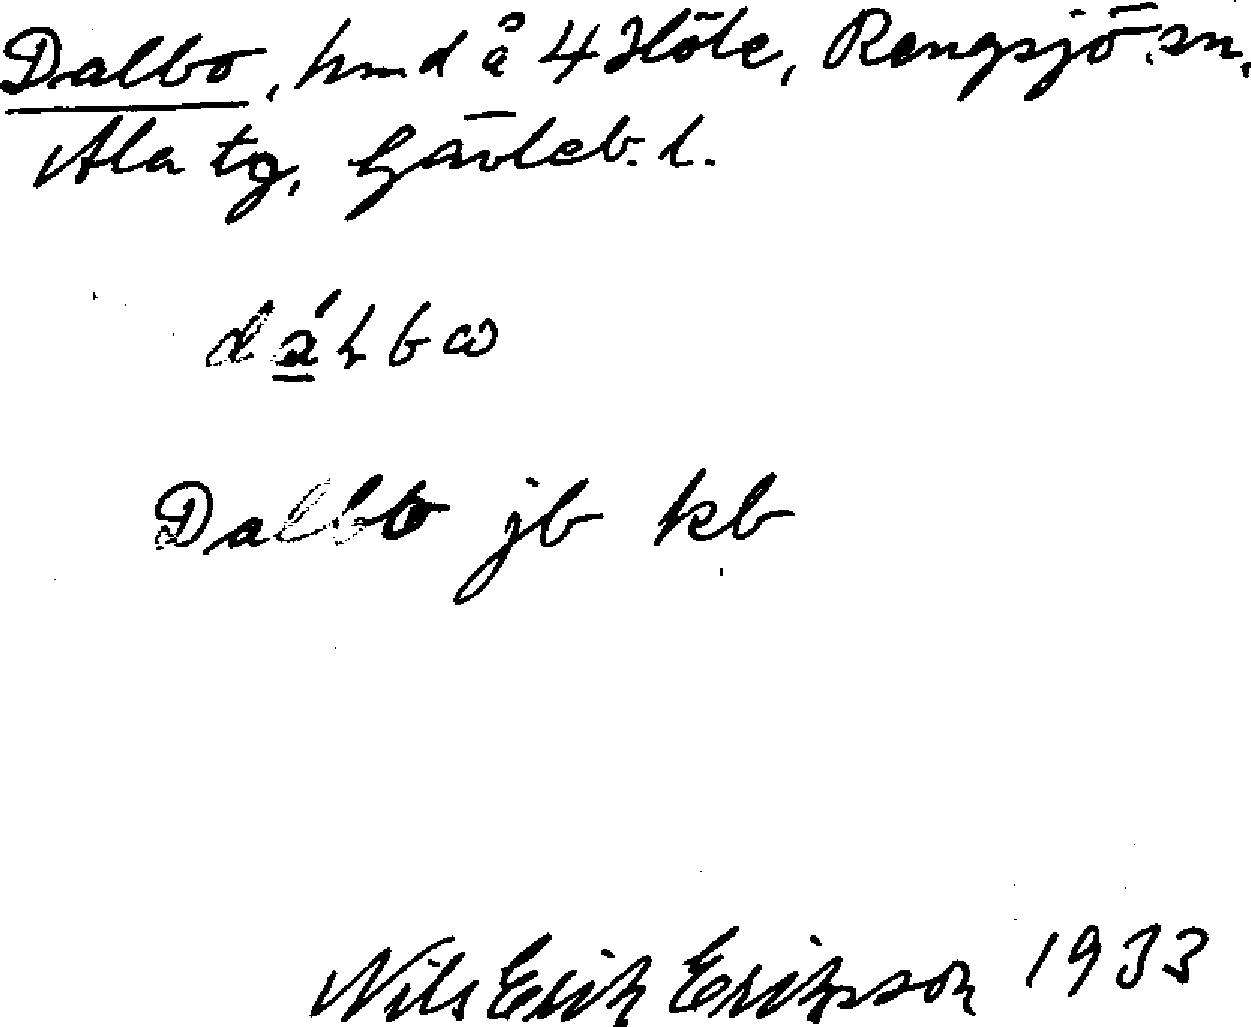 Dalbo, hmd å 4 Höle, Rengsjö sn,
Ala tg, Gävleb. l.
dáLbω
Dalbo jb kb
Nils Erik Eriksson 1933